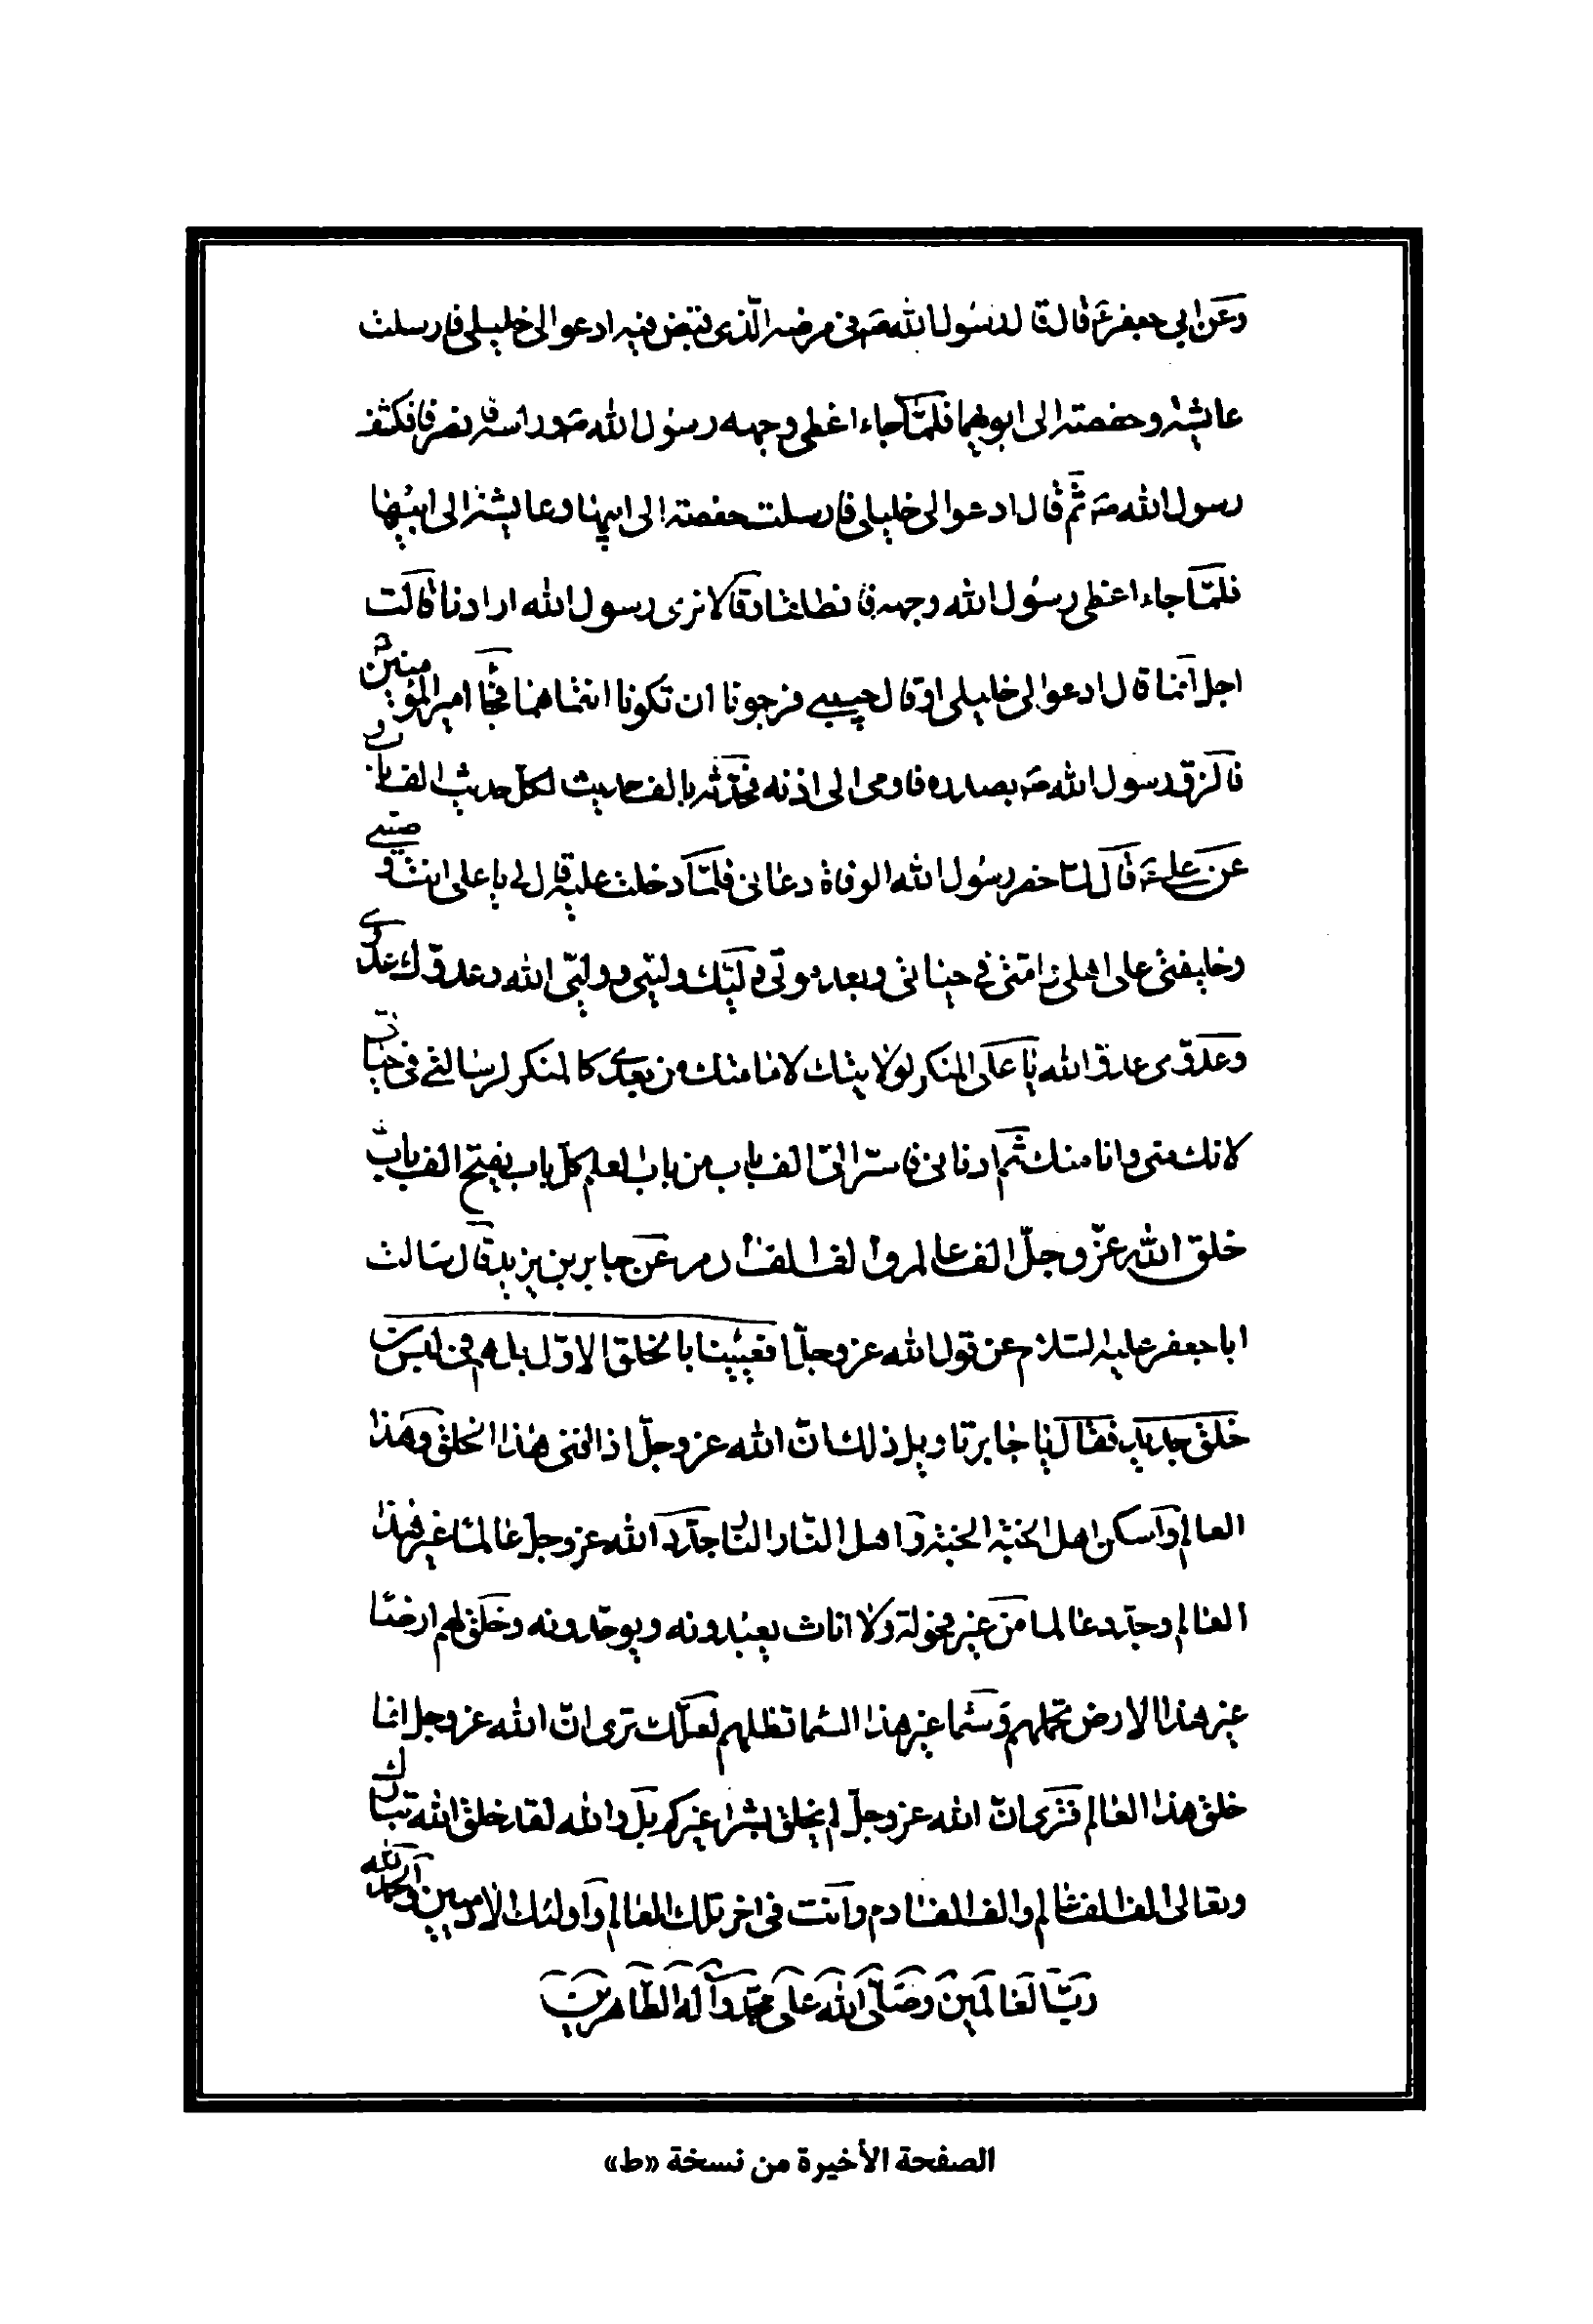 وعن ابي جعفر ع قال قال رسول الله ص في مرضه الّذي قبض فيه ادعوا لي خليلي فارسلت
عايشة وحفصة الى ابويهما فلمّا جاءا غطى وجهه رسول الله ص وراسه فانصرفا فكشف
رسول الله ص ثم قال ادعوا لي خليلي فارسلت حفصة الى ابيها وعايشة الى ابيها
فلمّا جاءا غطى رسول الله وجهه فانطلقا وقالا نرى رسول الله ارادنا قالت
اجل انما قال ادعوا لي خليلي او قال حبيبي فرجونا ان تكونا انتما هما فجاء امير المؤمنين ع
فالزق رسول الله ص بصدره فاومى الى اذنه فحدّثه بالف حديث لكل حديث الف باب
عن علي ع قال لما حضر رسول الله الوفاة دعاني فلمّا دخلت عليه قال لي يا علي انت وصيّي
وخليفتي على اهلي وامتي في حياتي وبعد موتي وليّك وليّي ووليّي الله وعدوّك عدوّي
وعدوّي عدوّ الله يا علي المنكر لولايتك لامامتك من بعدي كالمنكر لرسالتي في حياتي
لانك مني وانا منك ثم ادناني فاسرّ اليّ الف باب من باب العلم كل باب يفتح الف باب
خلق الله عزّ وجلّ الف عالم والف الف ادم عن جابر بن يزيد قال سالت
ابا جعفر عليه السّلام عن قول الله عز وجلّ افعيينا بالخلق الاوّل بل هم في لبس من
خلق جديد فقال يا جابر تاويل ذلك انّ الله عز وجلّ اذا افنى هذا الخلق وهذا
العالم واسكن اهل الجنّة الجنة واهل النّار النار جدّد الله عز وجلّ عالما غير هذا
العالم وجدّد عالما من غير فحولة ولا اناث يعبدونه ويوحّدونه وخلق لهم ارضا
غير هذا الارض تحملهم وسما غير هذا السما تظلهم لعلّك ترى انّ الله عز وجل انما
خلق هذا العالم فترى انّ الله عز وجلّ لم يخلق بشرا غيركم بل والله لقد خلق الله تبارك
وتعالى الف الف عالم والف الف ادم وانت في اخر تلك العالم واولئك الادميين والحمد لله
ربّ العالمين وصلّى الله على محمّد وآله الطّاهرين
الصفحة الأخيرة من نسخة «ط»